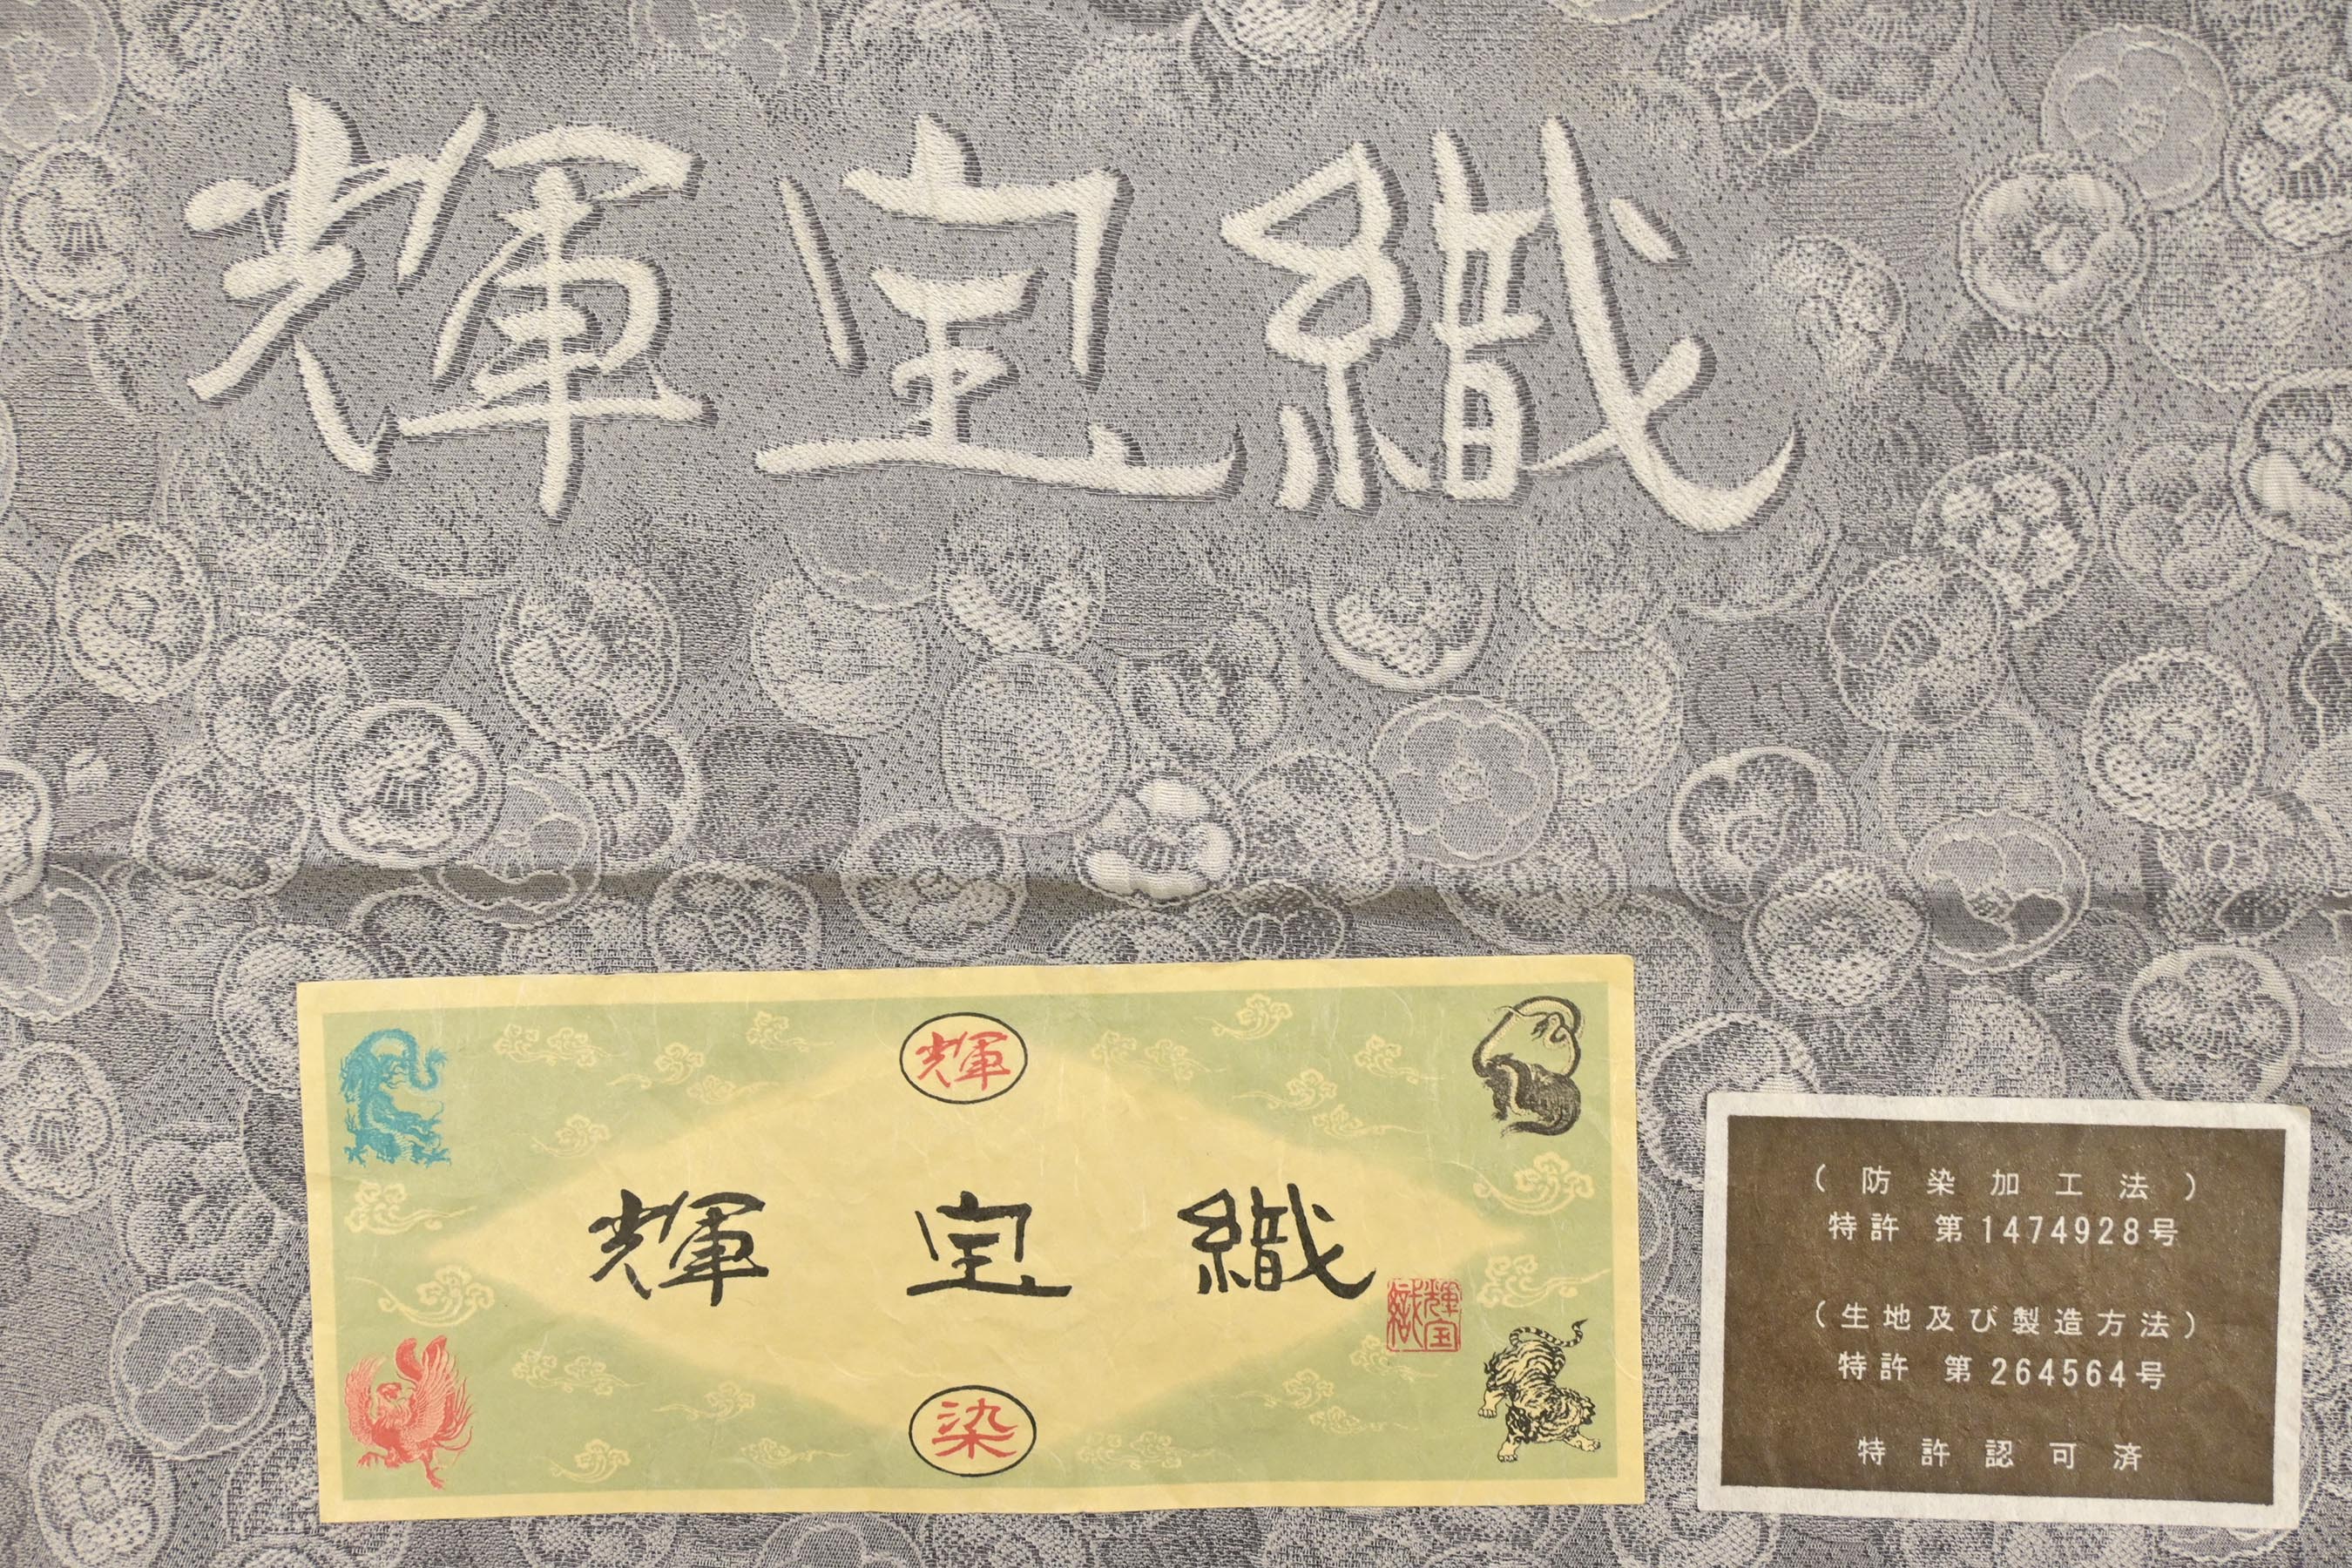 輝宝織
輝
輝宝織
輝宝織
染
(防染加工法)
特許 第1474928号
(生地及び製造方法)
特許 第264564号
特許認可済